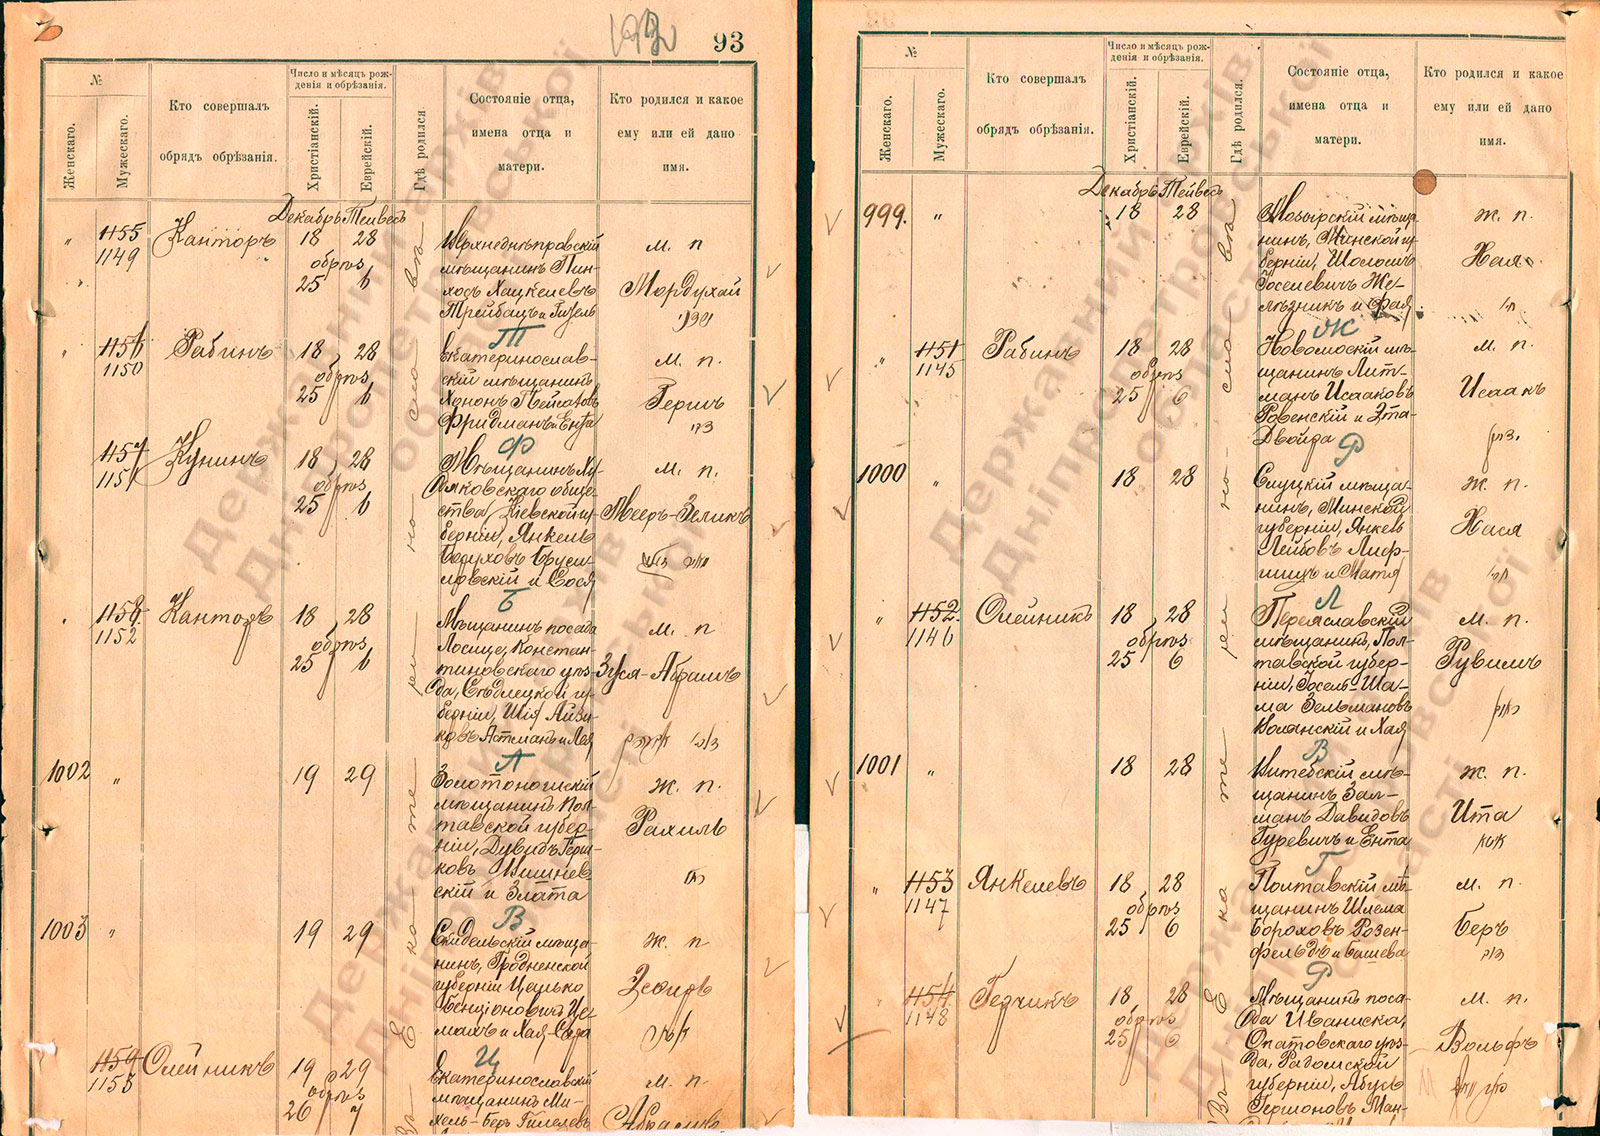 1930
93
№
Женскаго.
Мужескаго.
Кто совершалъ
обрядъ обрѣзанія.
Число и мѣсяцъ рож-
денія и обрѣзанія.
Христіанскій.
Еврейскій.
Гдѣ родился
Состояніе отца,
имена отца и
матери.
Кто родился и какое
ему или ей дано
имя.
Декабрь Тейвесъ
"
1155
1149
Канторъ
18 28
обрѣз
25 6
Верхнеднѣпровскій
мѣщанинъ Пин-
хосъ Хацкелевъ
м. п
Мордухай
"
1156
1150
Рабинъ
18 28
обрѣз
25 6
Т
Екатеринослав-
скій мѣщанинъ
Фридманъ и Ента
м. п.
Гершъ
1157
1151
Кунинъ
18 28
обрѣз
25 6
Ф
Мѣщанинъ
ства, Кіевской гу-
берніи, Янкель
Боруховъ Бруси-
ловскій и Сося
м. п.
Мееръ-Зеликъ
1158
1152
Канторъ
18 28
обрѣз
25 6
Б
Мѣщанинъ посада
Лосице, Констан-
тиновскаго уѣз-
да, Сѣдлецкой гу-
берніи, Шія Айзи-
ковъ Астманъ и Лая
м. п
Зуся-Абрамъ
1002
"
19 29
А
Золотоношскій
мѣщанинъ Пол-
тавской губер-
ніи, Дувидъ Герш-
ковъ Вишнев-
скій и Злата
ж. п.
Рахиль
1003
"
19 29
В
Скидельскій мѣща-
нинъ, Гродненской
губерніи Цалько
Бенціоновичъ Це-
махъ и Хая-Сора
ж. п
1159
1153
Олейникъ
19 29
обрѣз
26 7
Ц
Екатеринославскій
мѣщанинъ Ми-
хель-Беръ Гилелевъ
м. п.
Абрамъ
Въ Екатеринославѣ
№
Женскаго.
Мужескаго.
Кто совершалъ
обрядъ обрѣзанія.
Число и мѣсяцъ рож-
денія и обрѣзанія.
Христіанскій.
Еврейскій.
Гдѣ родился.
Состояніе отца,
имена отца и
матери.
Кто родился и какое
ему или ей дано
имя.
Декабрь Тейвесъ
999.
"
18 28
Мозырскій мѣща-
нинъ, Минской гу-
берніи, Шоломъ
Іоселевичъ Же-
лѣзникъ и Фая
ж. п.
Хая
"
1151
1145
Рабинъ
18 28
обрѣз
25 6
Ж
Новомоскій мѣ-
щанинъ Лит-
манъ Исааковъ
Ровенскій и Эта-
Двойра
м. п.
Исаакъ
1000
"
18 28
Р
Слуцкій мѣща-
нинъ, Минской
губерніи, Янкель
Лейбовъ Лиф-
шицъ и Матя
ж. п.
Хася
"
1152.
1146
Олейникъ
18 28
обрѣз
25 6
Л
Переяславскій
мѣщанинъ, Пол-
тавской губер-
ніи, Іосель-Ша-
ма Зельмановъ
Волянскій и Хая
м. п.
Рувимъ
1001
"
18 28
В
Витебскій мѣ-
щанинъ Зал-
манъ Давидовъ
Гуревичъ и Ента
ж. п.
Ита
"
1153
1147
Янкелевъ
18 28
обрѣз
25 6
Г
Полтавскій мѣ-
щанинъ Шлема
Бороховъ Розен-
фельдъ и Башева
м. п.
Беръ
1154
1148
Герчикъ
18 28
обрѣз
25 6
Р
Мѣщанинъ поса-
да Иваниска,
Опатовскаго уѣз-
да, Радомской
губерніи, Абуль
Гершоновъ Ман-
м. п.
Вольфъ
Въ Екатеринославѣ
Державний архів
Дніпропетровської області